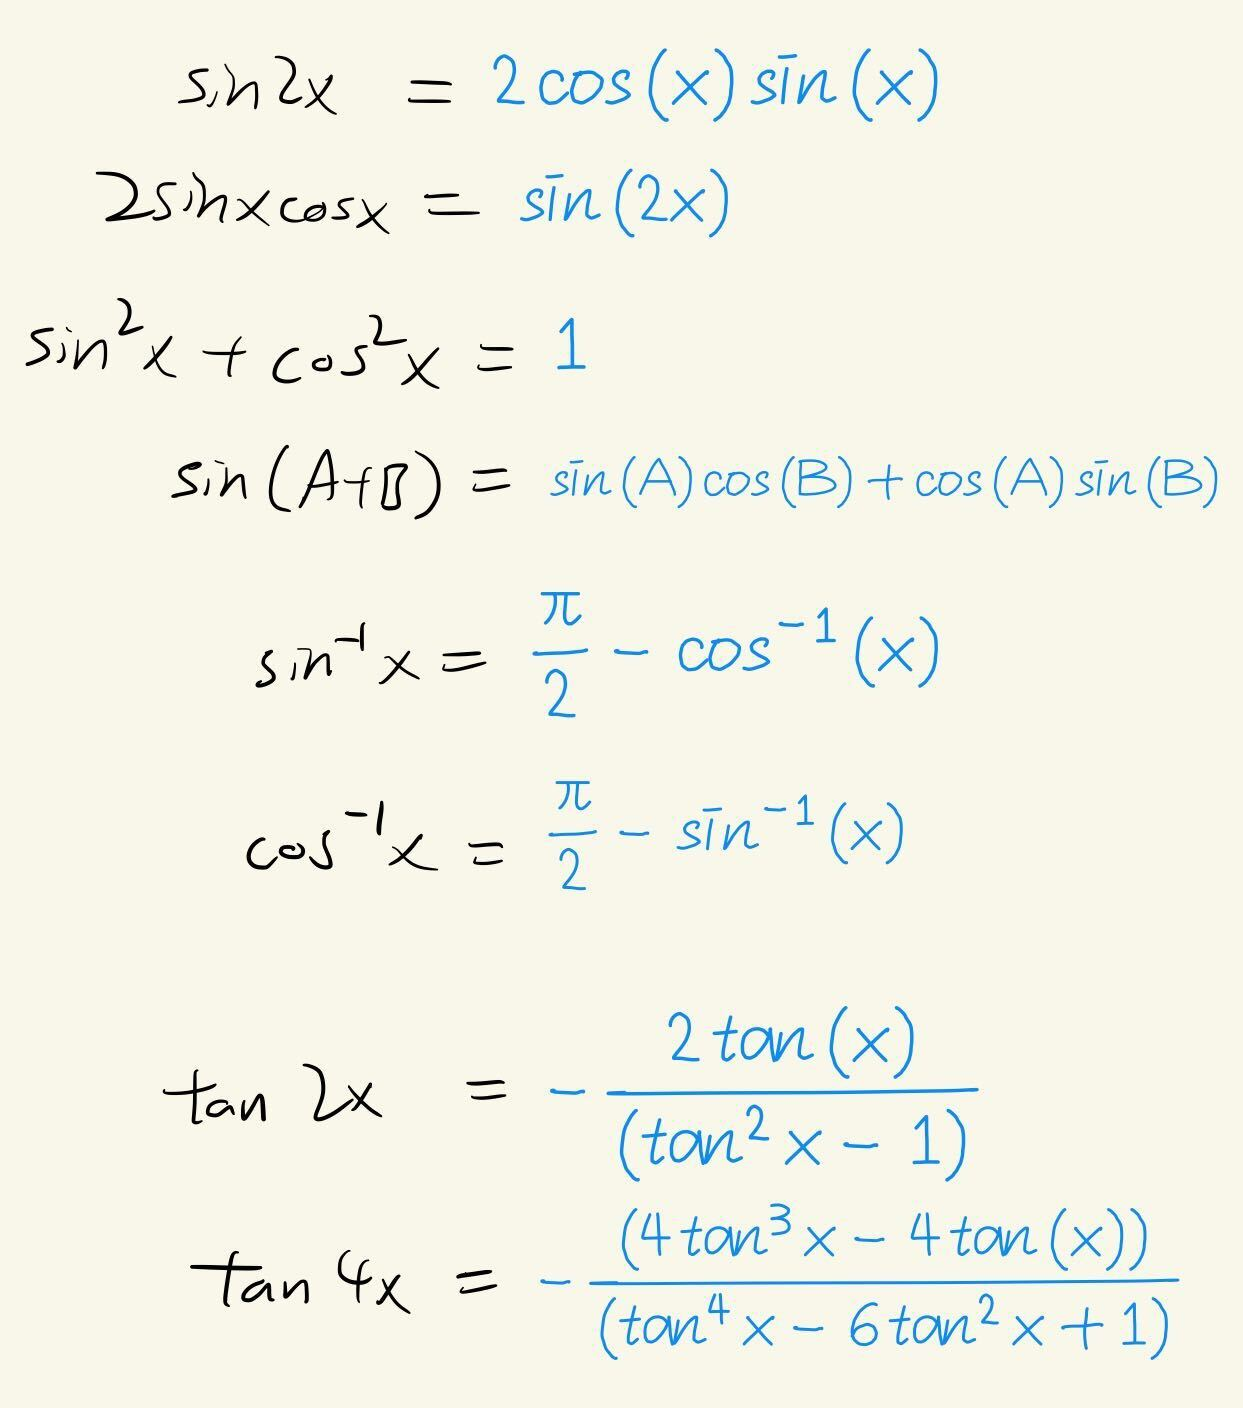 sin2x = 2cos(x)sin(x)
2sinxcosx = sin(2x)
sin²x + cos²x = 1
sin(A+B) = sin(A)cos(B) + cos(A)sin(B)
sin⁻¹x = π/2 − cos⁻¹(x)
cos⁻¹x = π/2 − sin⁻¹(x)
tan 2x = − 2tan(x)/(tan²x − 1)
tan 4x = − (4tan³x − 4tan(x))/(tan⁴x − 6tan²x + 1)